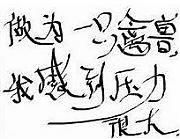 做为一只禽兽,
我感到压力
很大